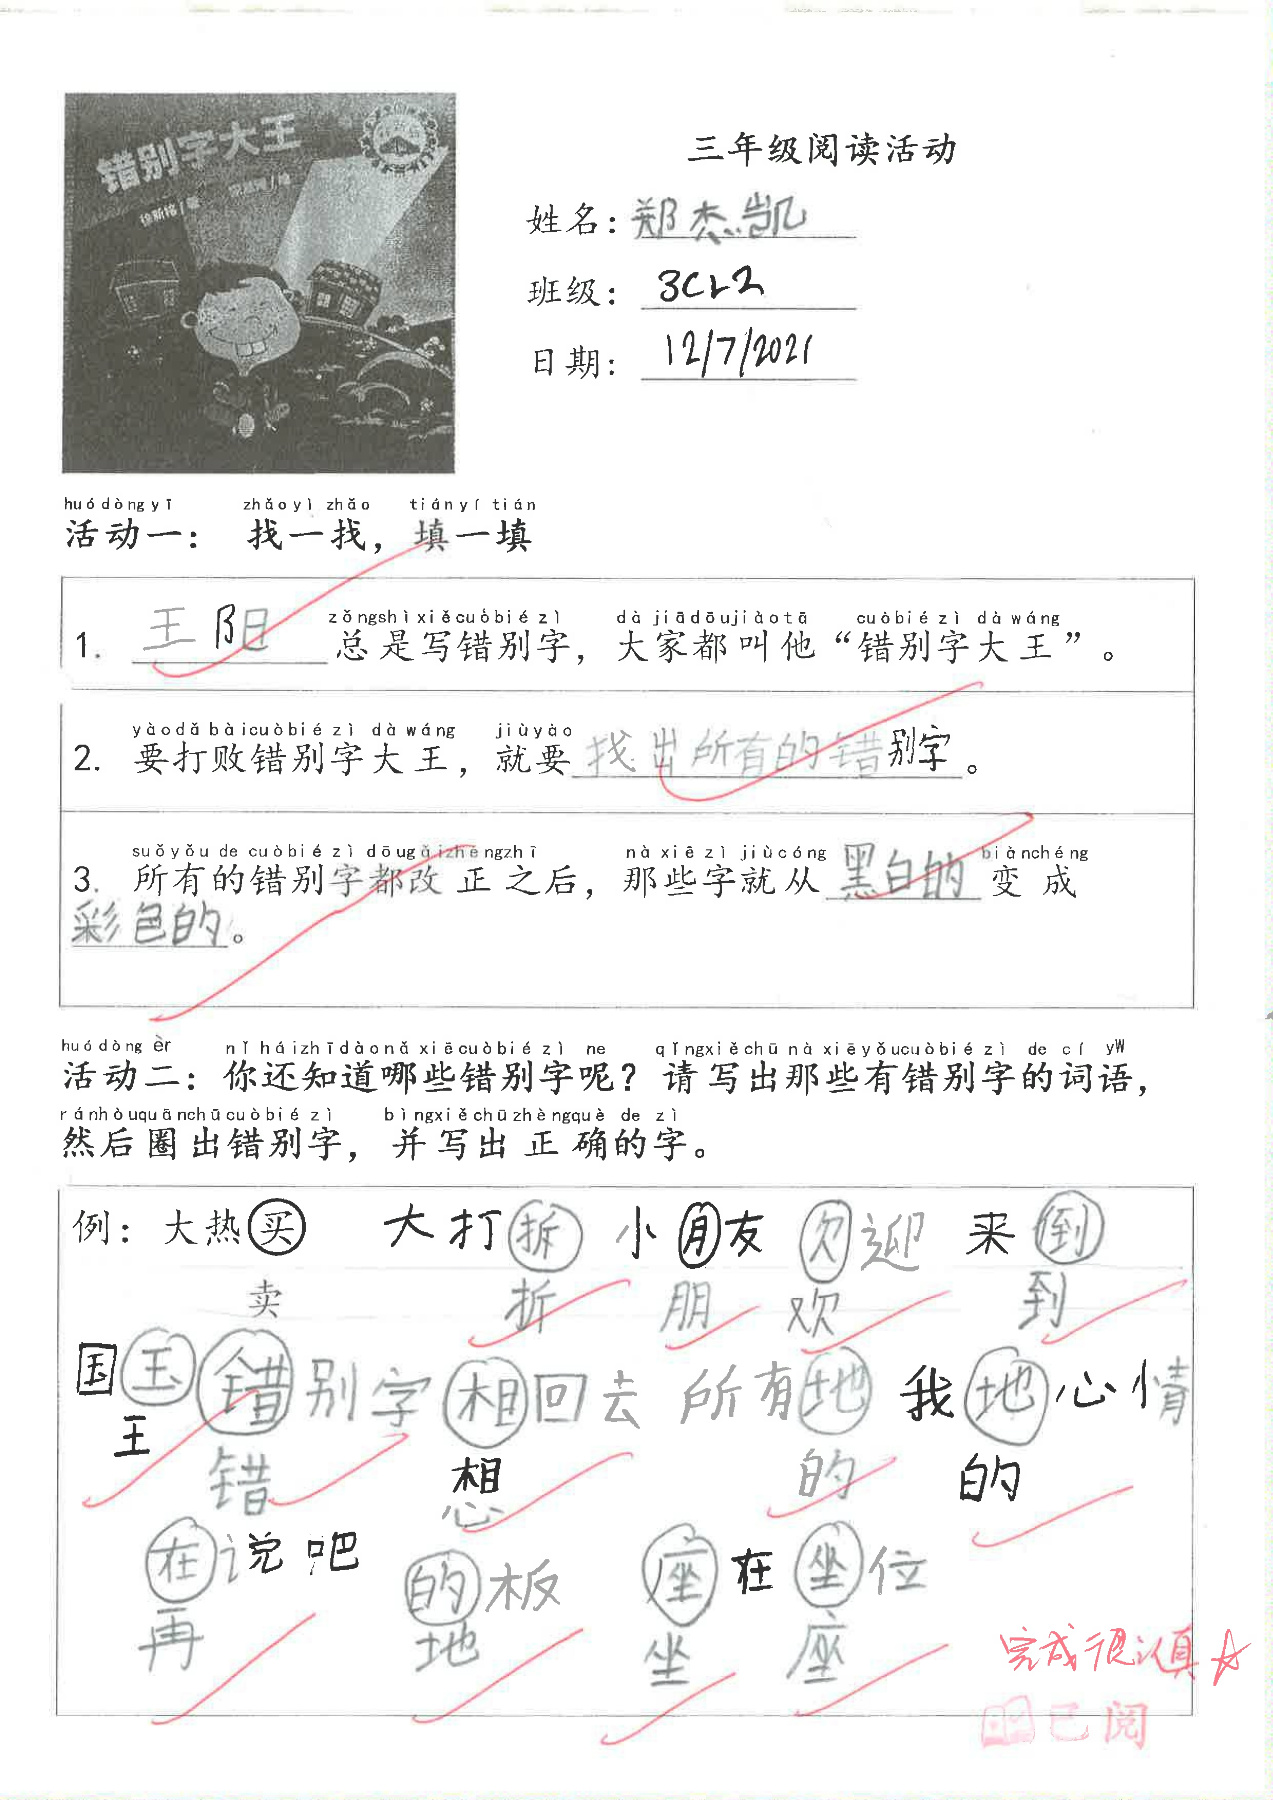 错别字大王
徐新格/著
三年级阅读活动
姓名：郑杰凯
班级：3CL2
日期：12/7/2021
huódòngyī zhǎoyìzhǎo tiányítián
活动一： 找一找，填一填
zǒngshìxiěcuòbiézì dàjiādōujiàotā cuòbiézìdàwáng
1. 王阳 总是写错别字，大家都叫他“错别字大王”。
yàodǎbàicuòbiézìdàwáng jiùyào
2. 要打败错别字大王，就要找出所有的错别字。
suǒyǒudecuòbiézìdōugǎizhēngzhī nàxiēzìjiùcóng biànchéng
3. 所有的错别字都改正之后，那些字就从黑白的变成
彩色的。
huódòngèr nǐháizhīdàonǎxiēcuòbiézìne qǐngxiěchūnàxiēyǒucuòbiézìdecíyW
活动二：你还知道哪些错别字呢？请写出那些有错别字的词语，
ránhòuquānchūcuòbiézì bìngxiěchūzhèngquèdezì
然后圈出错别字，并写出正确的字。
例：大热买 大打拆 小月友 欠迎 来倒
卖 折 朋 欢 到
国玉 错别字 相回去 所有地 我地心情
王 错 想 的 的
在说吧 的板 座在坐位
再 地 坐 座
完成很认真☆
已阅